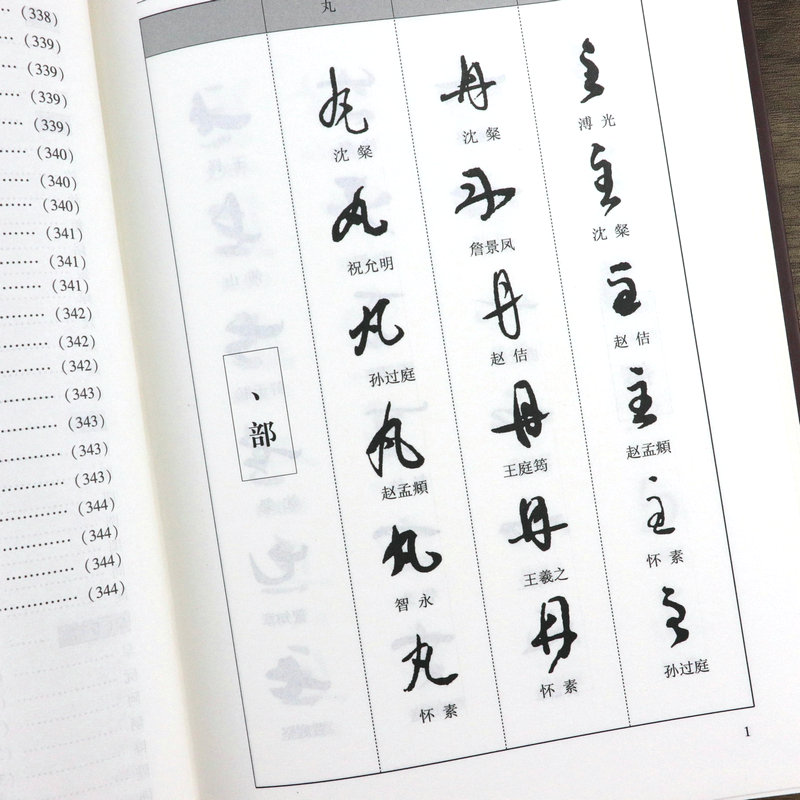 (338)
(339)
(339)
(339)
(339)
(340)
(340)
(340)
(341)
(341)
(341)
(342)
(342)
(342)
(343)
(343)
(343)
(343)
(344)
(344)
(344)
(344)
丸
丶部
丸
沈粲
丸
祝允明
丸
孙过庭
丸
赵孟頫
丸
智永
丸
怀素
丹
沈粲
丹
詹景凤
丹
赵佶
丹
王庭筠
丹
王羲之
丹
怀素
主
溥光
主
沈粲
主
赵佶
主
赵孟頫
主
怀素
主
孙过庭
1